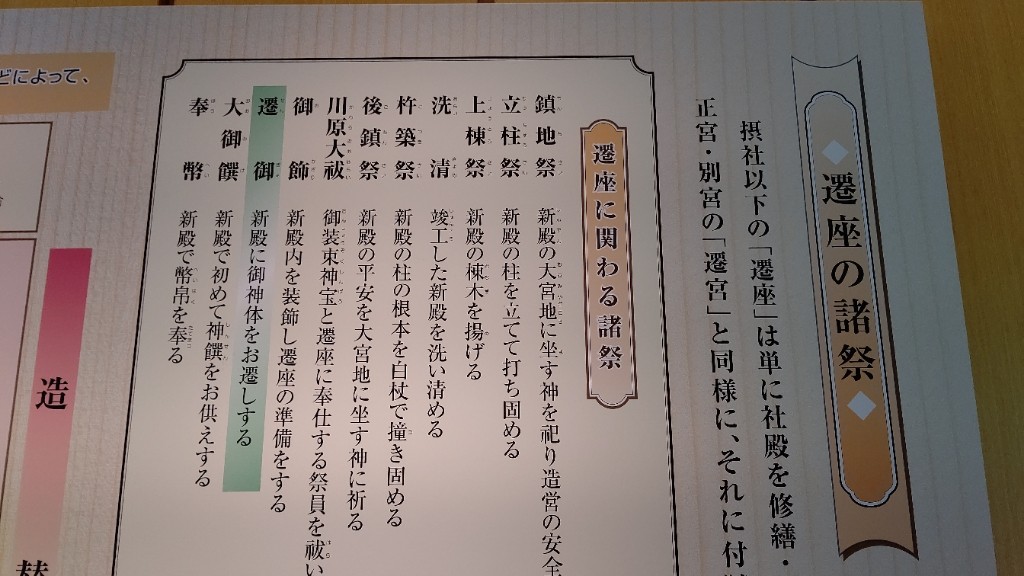 遷座の諸祭
摂社以下の「遷座」は単に社殿を修繕・
正宮・別宮の「遷宮」と同様に、それに付
遷座に関わる諸祭
鎮地祭 新殿の大宮地に坐す神を祀り造営の安全
立柱祭 新殿の柱を立てて打ち固める
上棟祭 新殿の棟木を揚げる
洗清 竣工した新殿を洗い清める
杵築祭 新殿の柱の根本を白杖で撞き固める
後鎮祭 新殿の平安を大宮地に坐す神に祈る
川原大祓 御装束神宝と遷座に奉仕する祭員を祓い
御飾 新殿内を装飾し遷座の準備をする
遷御 新殿に御神体をお遷しする
大御饌 新殿で初めて神饌をお供えする
奉幣 新殿で幣帛を奉る
どによって、
造
替